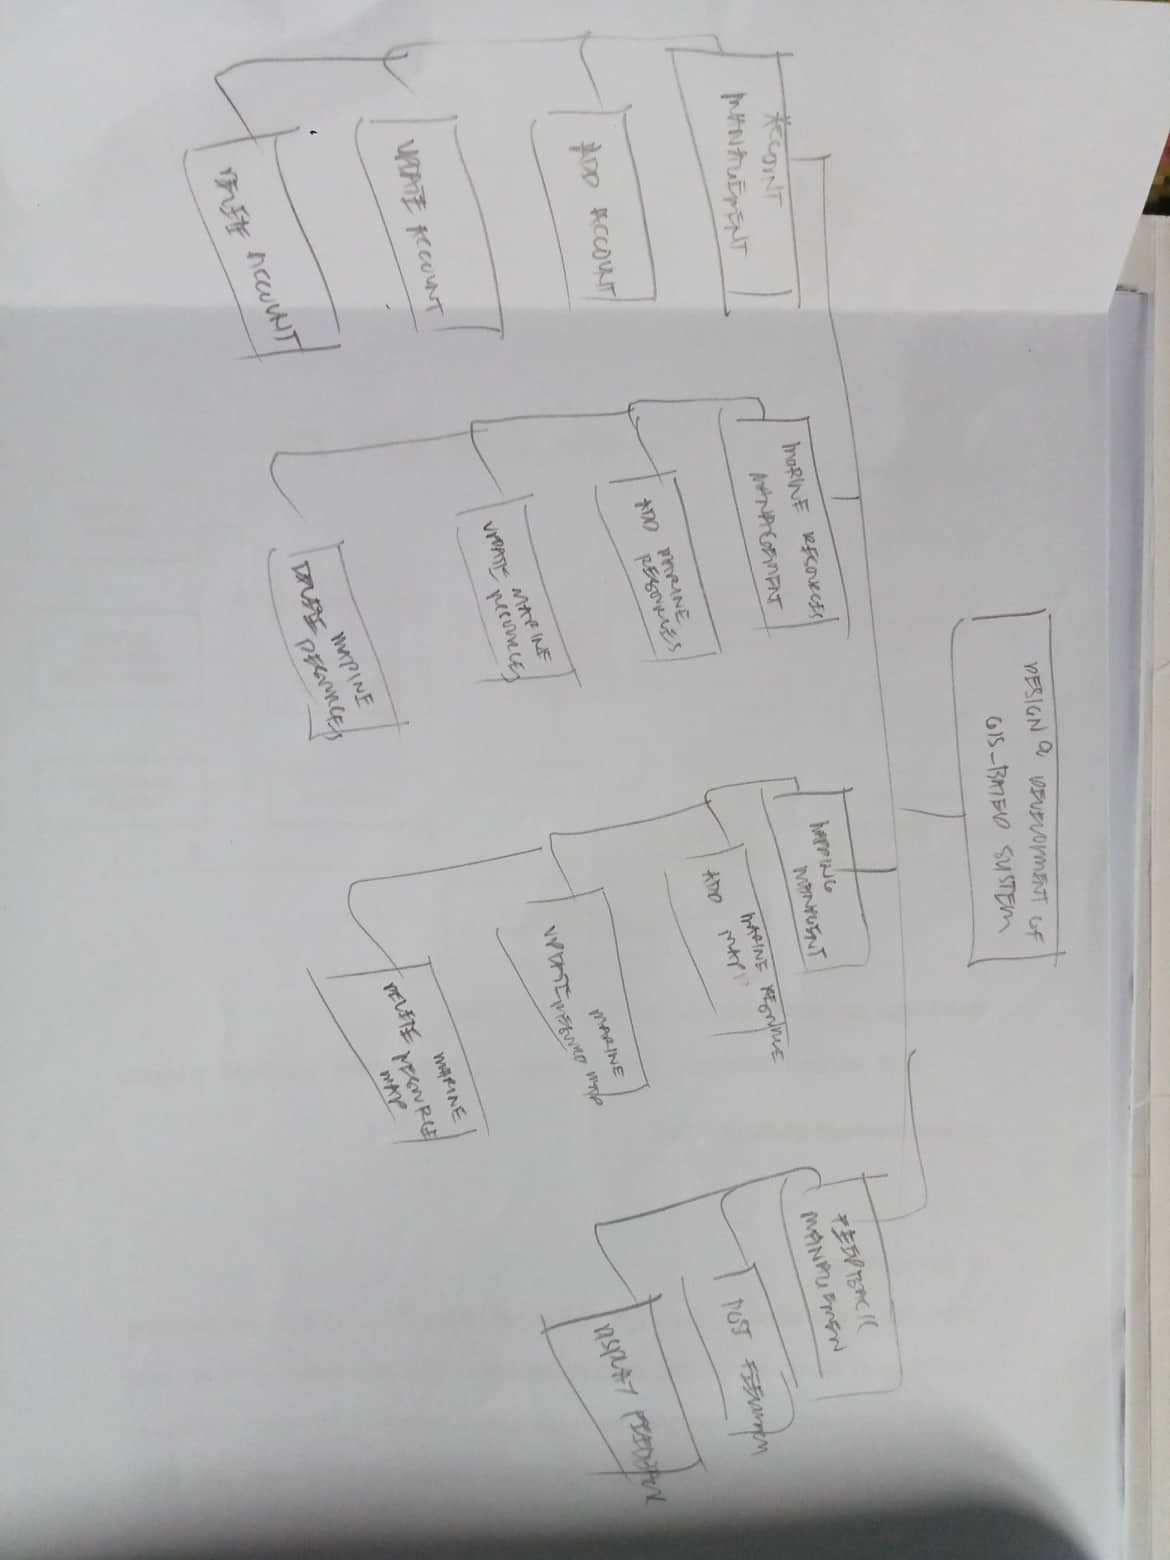 DESIGN & DEVELOPMENT OF
GIS-BATED SYSTEM
ACCOUNT
MANAGEMENT
ADD ACCOUNT
UPDATE ACCOUNT
DELETE ACCOUNT
MARINE RESOURCES
MANAGEMENT
ADD MARINE
RESOURCES
UPDATE MARINE
RESOURCES
DELETE MARINE
RESOURCES
MAPPING
MANAGENT
MARINE RESOURCE
ADD MAP
MARINE
UPDATE RESOURCE MAP
MARINE
DELETE RESOURCE
MAP
FEEDBACK
MANAGEMEN
POST FEEDBACK
DISPLAY FEEDBACK